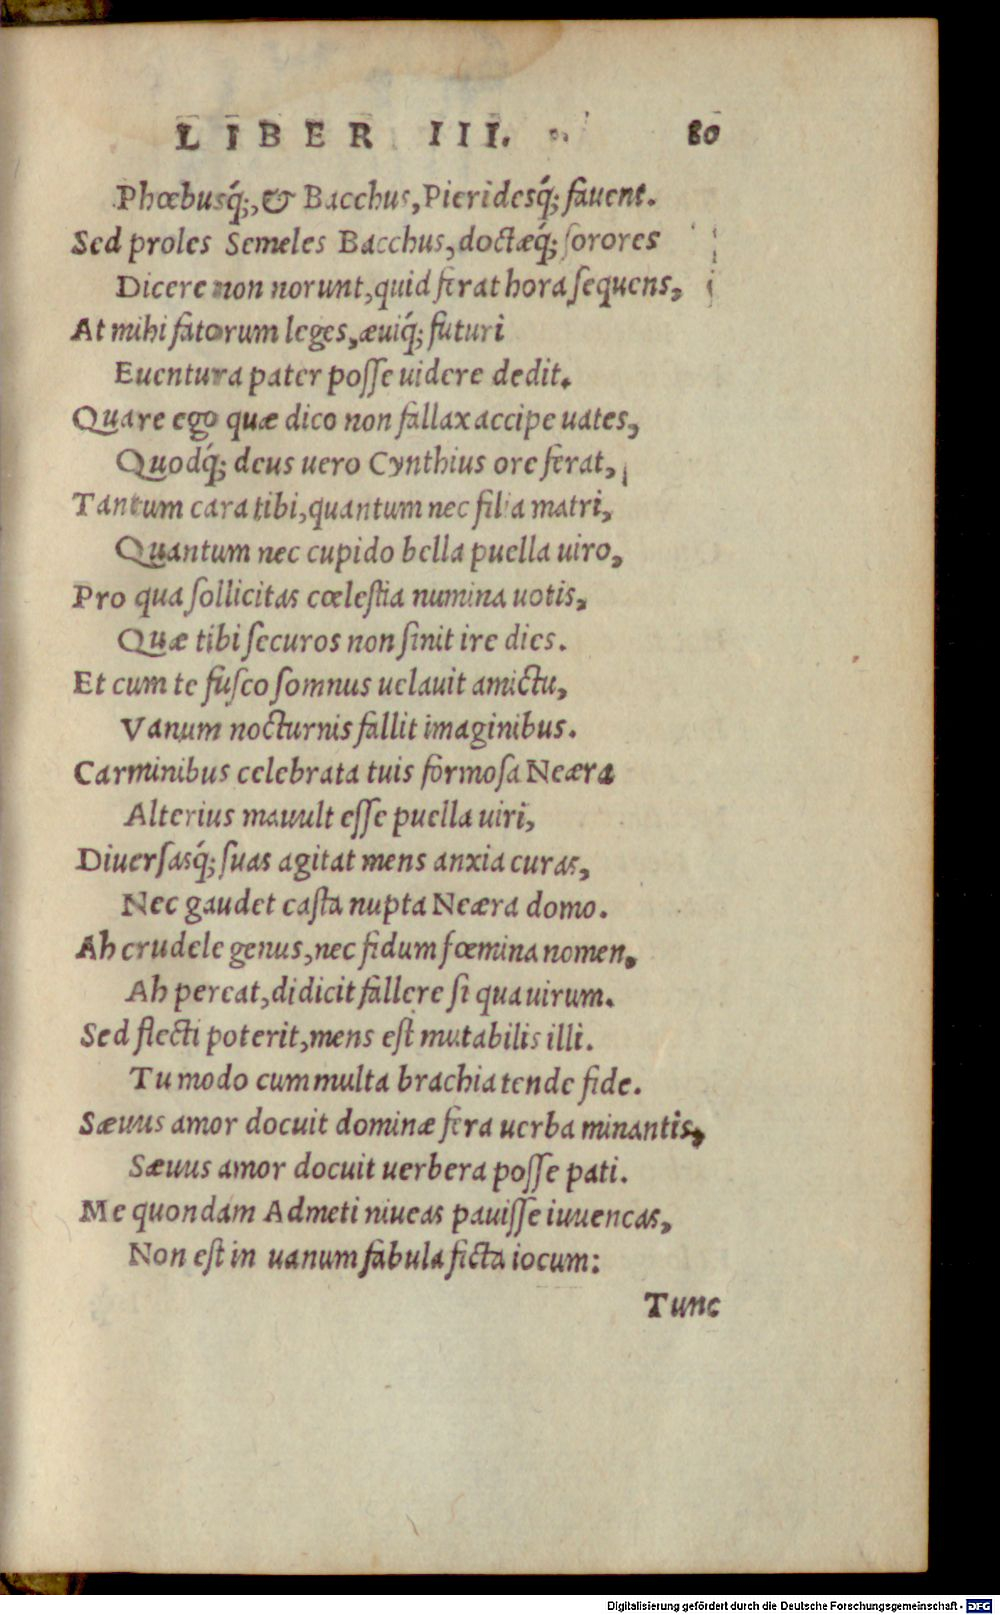 LIBER III. 80
Phœbusq́;, & Bacchus, Pieridesq́; fauent.
Sed proles Semeles Bacchus, doctæq́; ſorores
Dicere non norunt, quid ferat hora ſequens,
At mihi fatorum leges, æuiq́; futuri
Euentura pater poſſe uidere dedit.
Quare ego quæ dico non fallax accipe uates,
Quodq́; deus uero Cynthius ore ferat,
Tantum cara tibi, quantum nec filia matri,
Quantum nec cupido bella puella uiro,
Pro qua ſollicitas cœleſtia numina uotis,
Quæ tibi ſecuros non ſinit ire dies.
Et cum te fuſco ſomnus uelauit amictu,
Vanum nocturnis fallit imaginibus.
Carminibus celebrata tuis formoſa Neæra
Alterius mauult eſſe puella uiri,
Diuerſasq́; ſuas agitat mens anxia curas,
Nec gaudet caſta nupta Neæra domo.
Ah crudele genus, nec fidum fœmina nomen,
Ah pereat, didicit fallere ſi qua uirum.
Sed flecti poterit, mens eſt mutabilis illi.
Tu modo cum multa brachia tende fide.
Sæuus amor docuit dominæ fera uerba minantis,
Sæuus amor docuit uerbera poſſe pati.
Me quondam Admeti niueas pauiſſe iuuencas,
Non eſt in uanum fabula ficta iocum:
Tunc
Digitalisierung gefördert durch die Deutsche Forschungsgemeinschaft - DFG